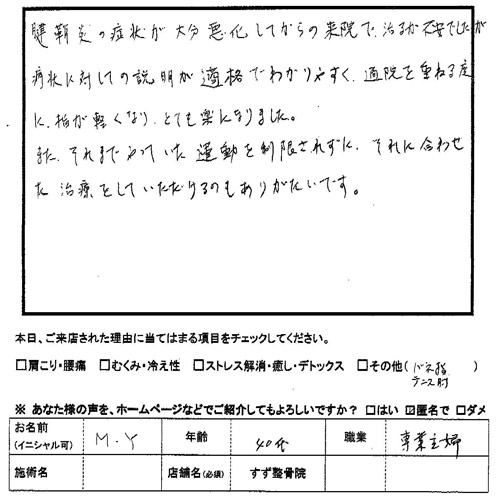 腱鞘炎の症状が大分悪化してからの来院で、治るか不安でしたが
症状に対しての説明が適格でわかりやすく、通院を重ねる度
に、指が軽くなり、とても楽になりました。
また、それまでやっていた運動を制限されずに、それに合わせ
た治療をしていただけるのもありがたいです。
本日、ご来店された理由に当てはまる項目をチェックしてください。
□肩こり・腰痛 □むくみ・冷え性 □ストレス解消・癒し・デトックス □その他(バネ指 テニス肘)
※ あなた様の声を、ホームページなどでご紹介してもよろしいですか？ □はい ☑匿名で □ダメ
お名前(イニシャル可) M.Y 年齢 40代 職業 専業主婦
施術名 店舗名(必須) すず整骨院